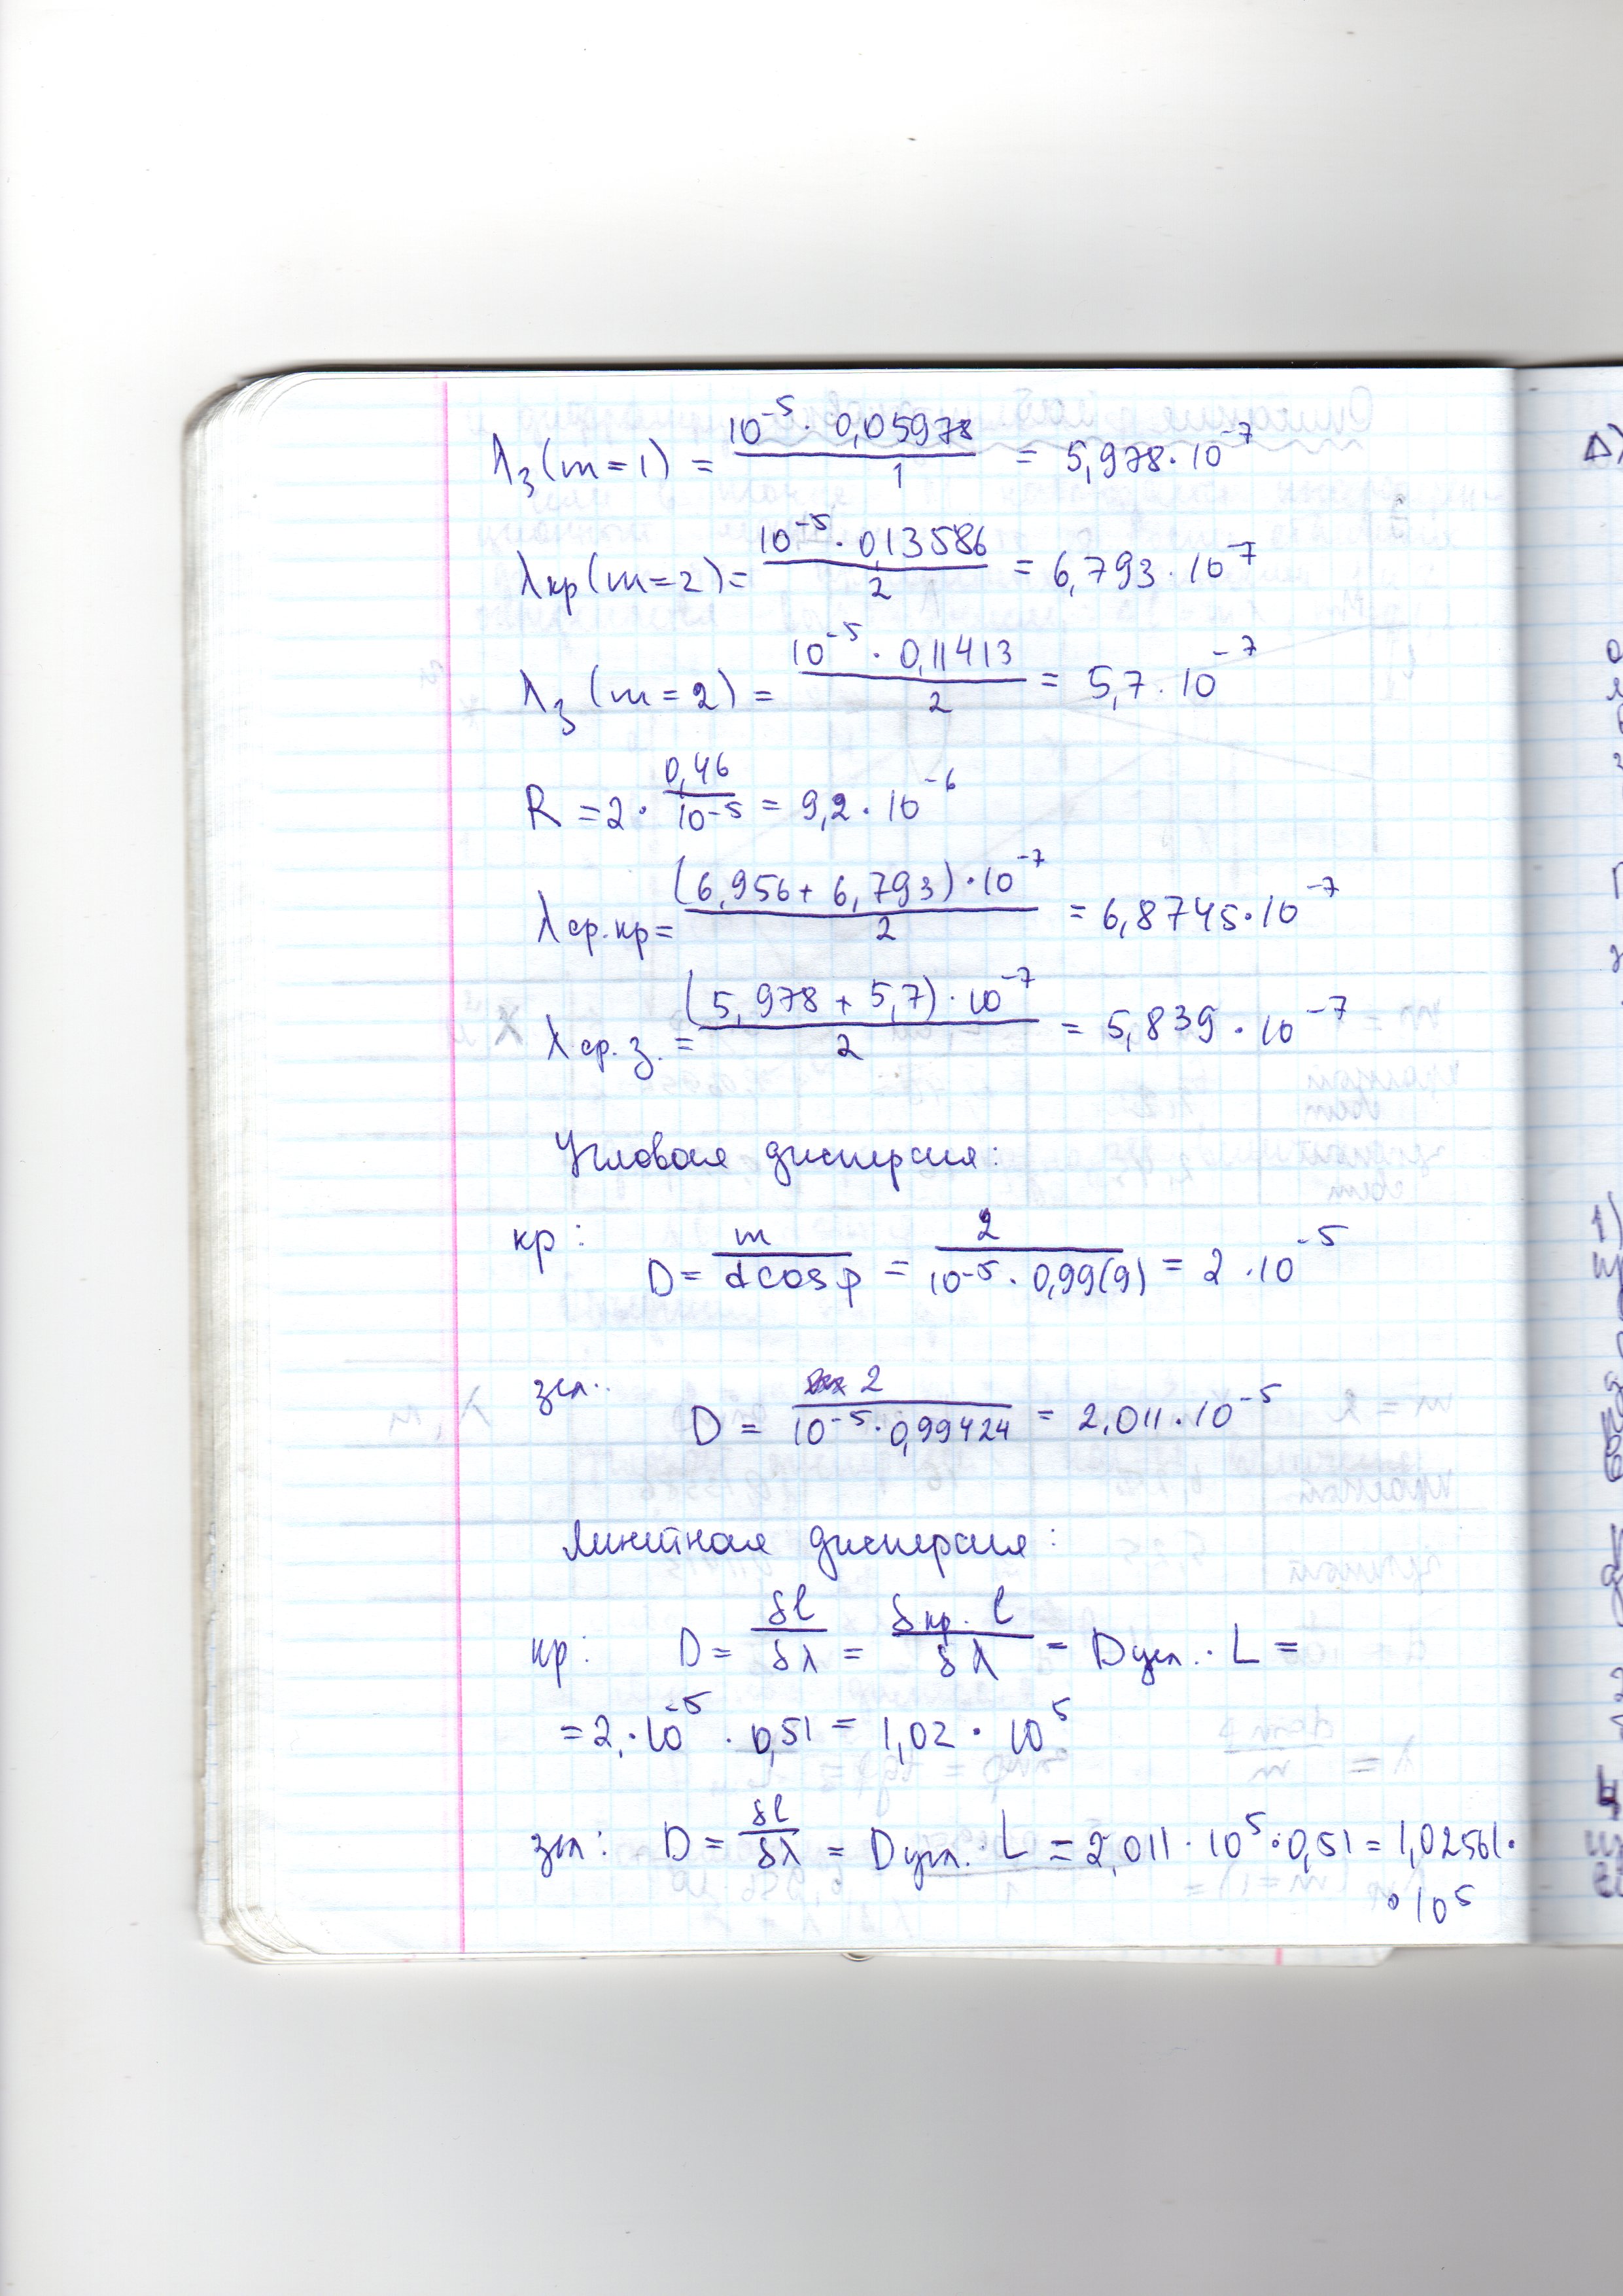 λз (m=1) = 10⁻⁵ · 0,05978 / 1 = 5,978·10⁻⁷
λкр (m=2) = 10⁻⁵ · 0,13586 / 2 = 6,793·10⁻⁷
λз (m=2) = 10⁻⁵ · 0,11413 / 2 = 5,7·10⁻⁷
R = 2 · 0,46 / 10⁻⁵ = 9,2·10⁻⁶
λср.кр = (6,956 + 6,793)·10⁻⁷ / 2 = 6,8745·10⁻⁷
λср.з. = (5,978 + 5,7)·10⁻⁷ / 2 = 5,839·10⁻⁷
Угловая дисперсия:
кр: D = m / d cos φ = 2 / 10⁻⁵ · 0,99(9) = 2·10⁻⁵
зел.: D = 2 / 10⁻⁵ · 0,99424 = 2,011·10⁻⁵
Линейная дисперсия:
кр: D = δl / δλ = δкр. l / δλ = Dугл. · L =
= 2·10⁻⁵ · 0,51 = 1,02·10⁵
зел: D = δl / δλ = Dугл. L = 2,011·10⁵·0,51 = 1,02561·
·10⁵